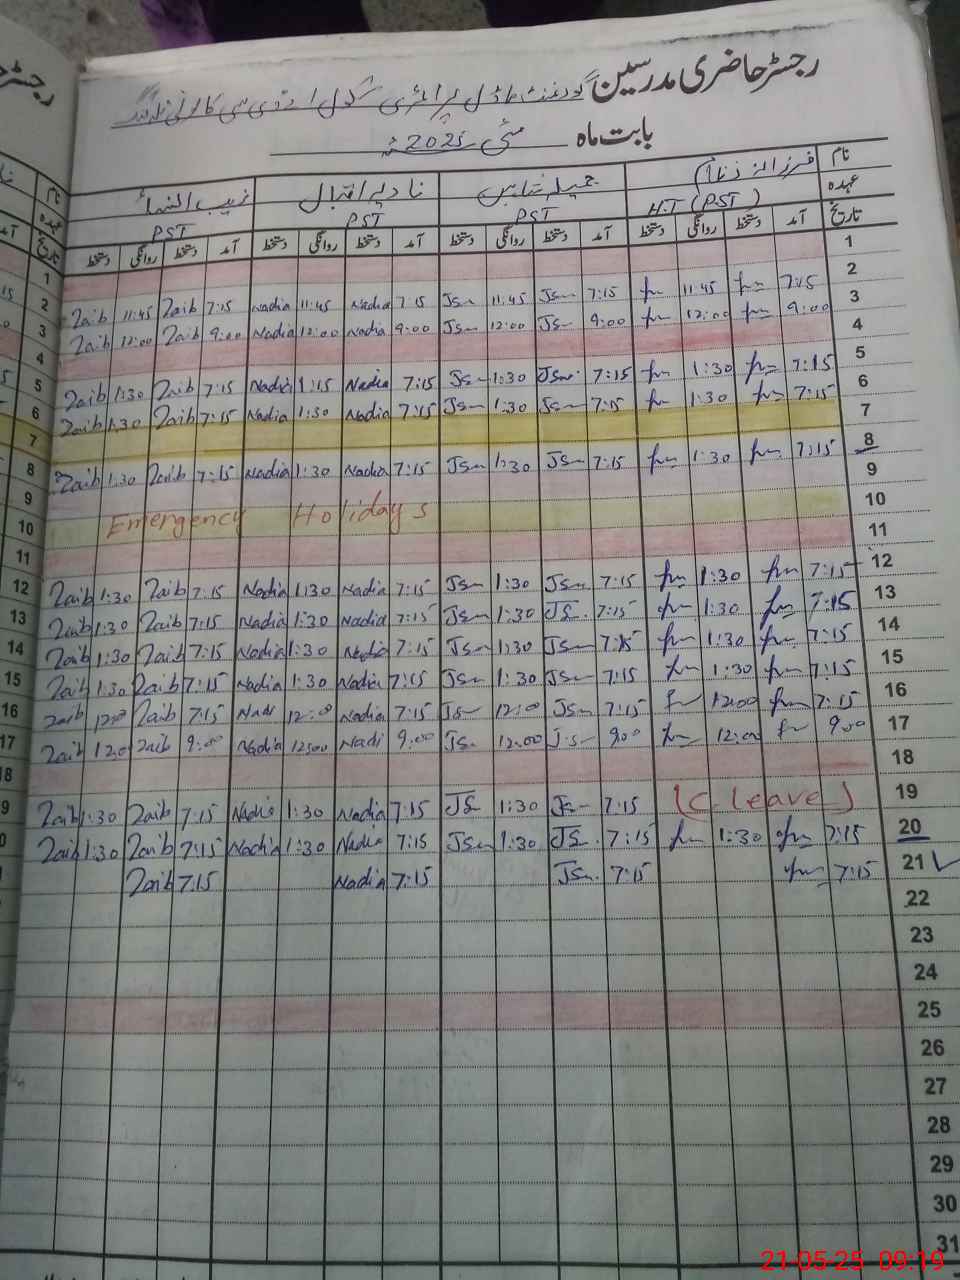 رجسٹر حاضری مدرسین گورنمنٹ ماڈل پرائمری سکول
بابت ماہ مئی 2025ء
نام فرزانہ نادیہ اقبال زیب النساء
عہدہ H.T (PST) PST PST PST
تاریخ آمد دستخط روانگی دستخط آمد دستخط روانگی دستخط آمد دستخط روانگی دستخط آمد دستخط روانگی دستخط
1
2 7:15 11:45 7:15 JSm 11:45 JSm 7:15 Nadia 11:45 Nadia 7:15 Zaib 11:45 Zaib
3 9:00 12:00 9:00 JSm 12:00 JSm 9:00 Nadia 12:00 Nadia 9:00 Zaib 12:00 Zaib
4
5 7:15 1:30 7:15 JSm 1:30 JSm 7:15 Nadia 1:15 Nadia 7:15 Zaib 1:30 Zaib
6 7:15 1:30 7:15 JSm 1:30 JSm 7:15 Nadia 1:30 Nadia 7:15 Zaib 1:30 Zaib
7
8 7:15 1:30 7:15 JSm 1:30 JSm 7:15 Nadia 1:30 Nadia 7:15 Zaib 1:30 Zaib
9
10 Emergency Holidays
11
12 7:15 1:30 7:15 JSm 1:30 JSm 7:15 Nadia 1:30 Nadia 7:15 Zaib 1:30 Zaib
13 7:15 1:30 7:15 JS 1:30 JSm 7:15 Nadia 1:30 Nadia 7:15 Zaib 1:30 Zaib
14 7:15 1:30 7:15 JSm 1:30 JSm 7:15 Nadia 1:30 Nadia 7:15 Zaib 1:30 Zaib
15 7:15 1:30 7:15 JSm 1:30 JSm 7:15 Nadia 1:30 Nadia 7:15 Zaib 1:30 Zaib
16 7:15 12:00 7:15 JSm 12:00 JSm 7:15 Nadia 12:00 Nadi 7:15 Zaib 12:00 Zaib
17 9:00 12:00 9:00 JS 12:00 JS 9:00 Nadi 12:00 Nadia 9:00 Zaib 12:0 Zaib
18
19 (C leave) 7:15 JSm 1:30 JS 7:15 Nadia 1:30 Nadia 7:15 Zaib 1:30 Zaib
20 7:15 1:30 7:15 JS 1:30 JSm 7:15 Nadia 1:30 Nadia 7:15 Zaib 1:30 Zaib
21 7:15 7:15 JSm 7:15 Nadia 7:15 Zaib
22
23
24
25
26
27
28
29
30
31
21-05-25 09:19